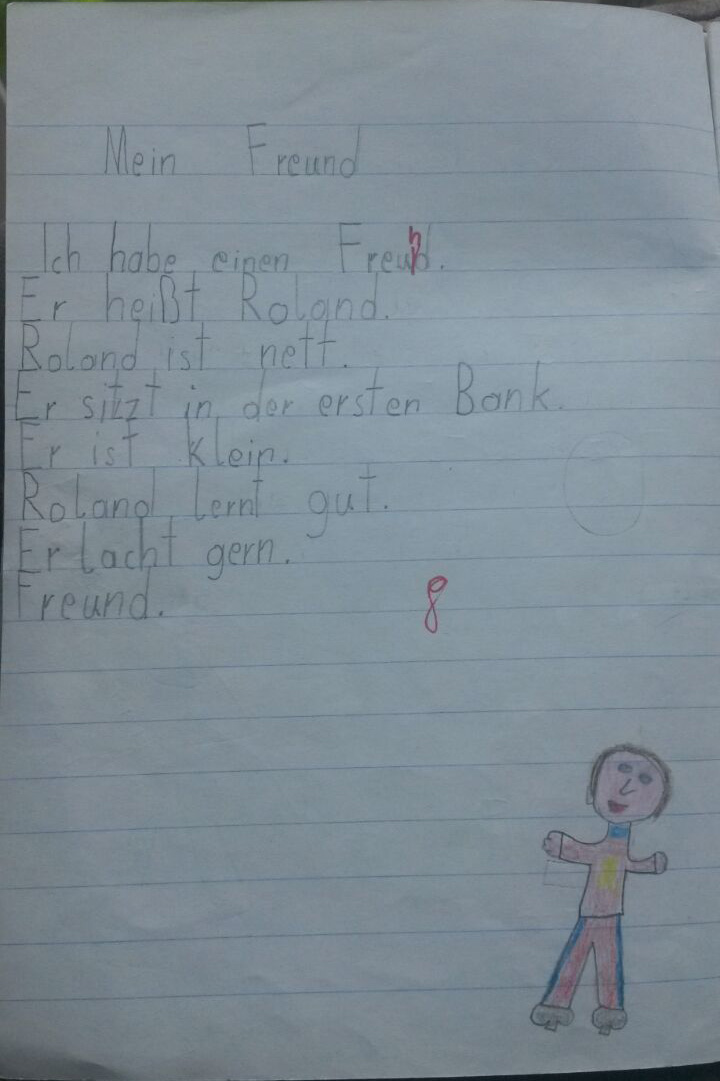 Mein Freund
Ich habe einen Freund.
Er heißt Roland.
Roland ist nett.
Er sitzt in der ersten Bank.
Er ist klein.
Roland lernt gut.
Er lacht gern.
Freund.
8